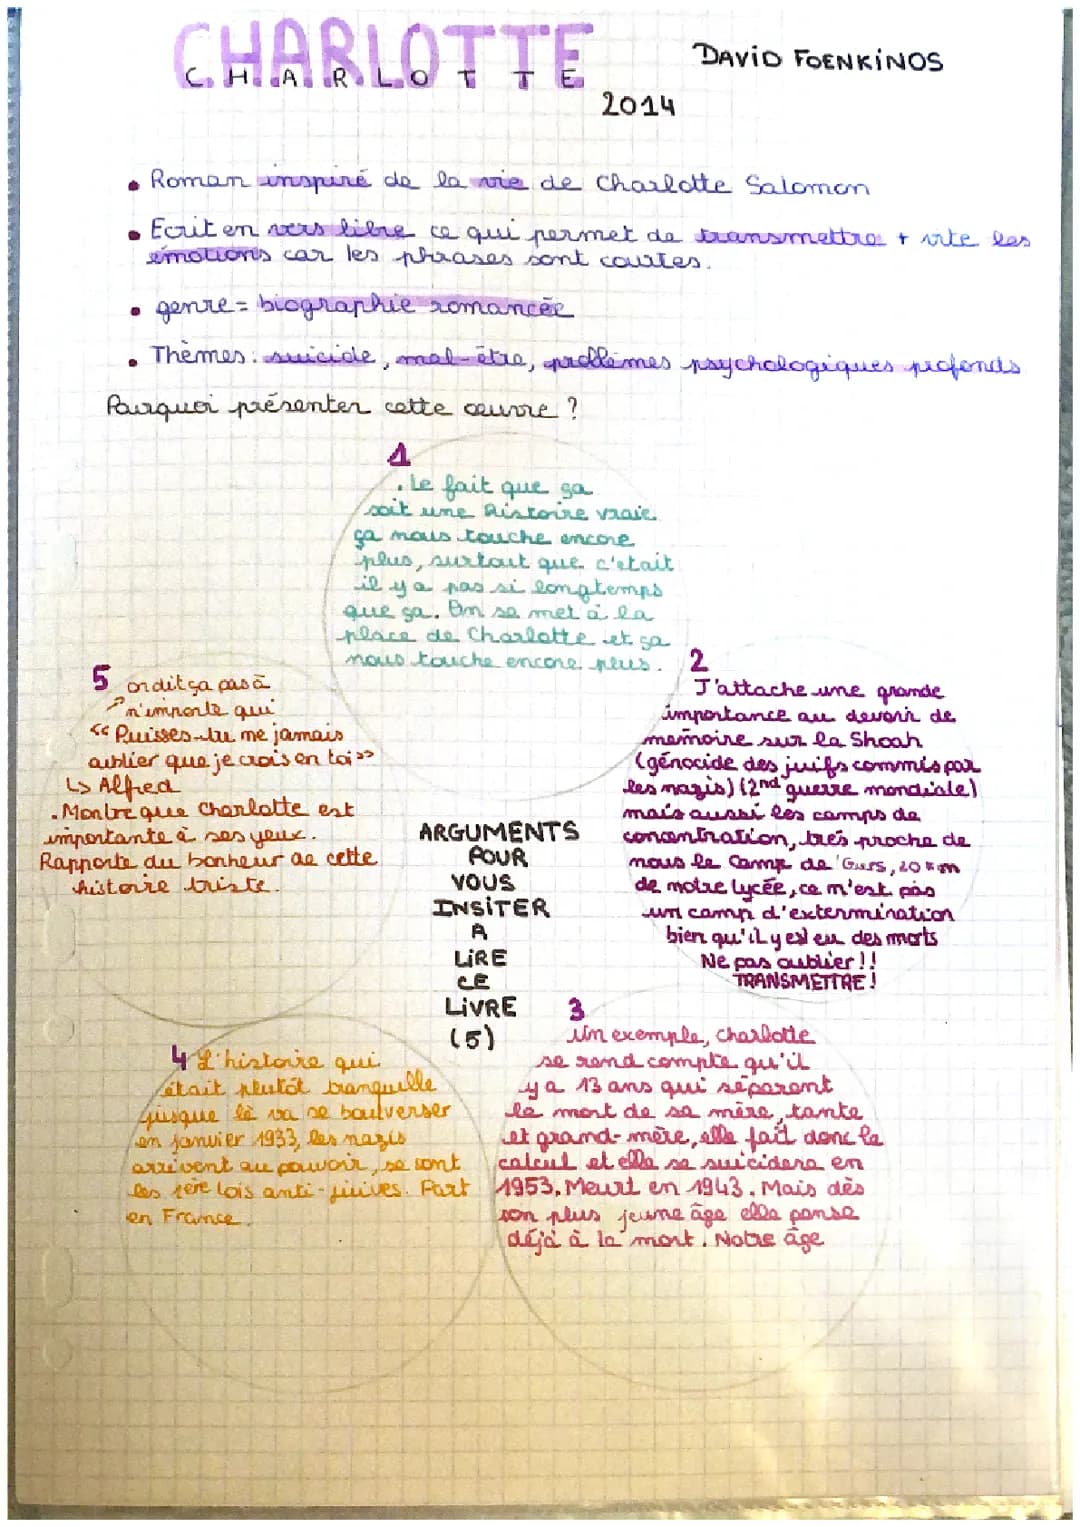 CHARLOTTE
CHARLOTTE
DAVID FOENKINOS
2014
• Roman inspiré de la vie de Charlotte Salomon
• Ecrit en vers libre ce qui permet de transmettre + vite les
émotions car les phrases sont courtes.
• genre = biographie romancée
• Thèmes : suicide, mal-être, problèmes psychologiques profonds
Pourquoi présenter cette œuvre ?
1
. Le fait que ça
soit une histoire vraie
ça nous touche encore
plus, surtout que c'etait
il y a pas si longtemps
que ça. On se met à la
place de Charlotte et ça
nous touche encore plus.
2
J'attache une grande
importance au devoir de
memoire sur la Shoah
(génocide des juifs commis par
les nazis) (2nd guerre mondiale)
mais aussi les camps de
concentration, très proche de
nous le Camp de Gurs, 20 km
de notre lycée, ce n'est pas
un camp d'extermination
bien qu'il y est eu des morts
Ne pas oublier !!
TRANSMETTRE !
5 on dit ça pas à
n'importe qui
<< Puisses-tu me jamais
oublier que je crois en toi >>
↳ Alfred
. Montre que Charlotte est
importante à ses yeux.
Rapporte du bonheur de cette
histoire triste.
ARGUMENTS
POUR
VOUS
INSITER
A
LIRE
CE
LIVRE
(5)
3
Un exemple, Charlotte
se rend compte qu'il
y a 13 ans qui séparent
la mort de sa mère, tante
et grand-mère, elle fait donc le
calcul et elle se suicidera en
1953. Meurt en 1943. Mais dès
son plus jeune âge elle pense
déjà à la mort. Notre âge
4 L'histoire qui
était plutôt tranquille
jusque là va se boulverser
en janvier 1933, les nazis
arrivent au pouvoir, se sont
les 1ère lois anti-juives. Part
en France.